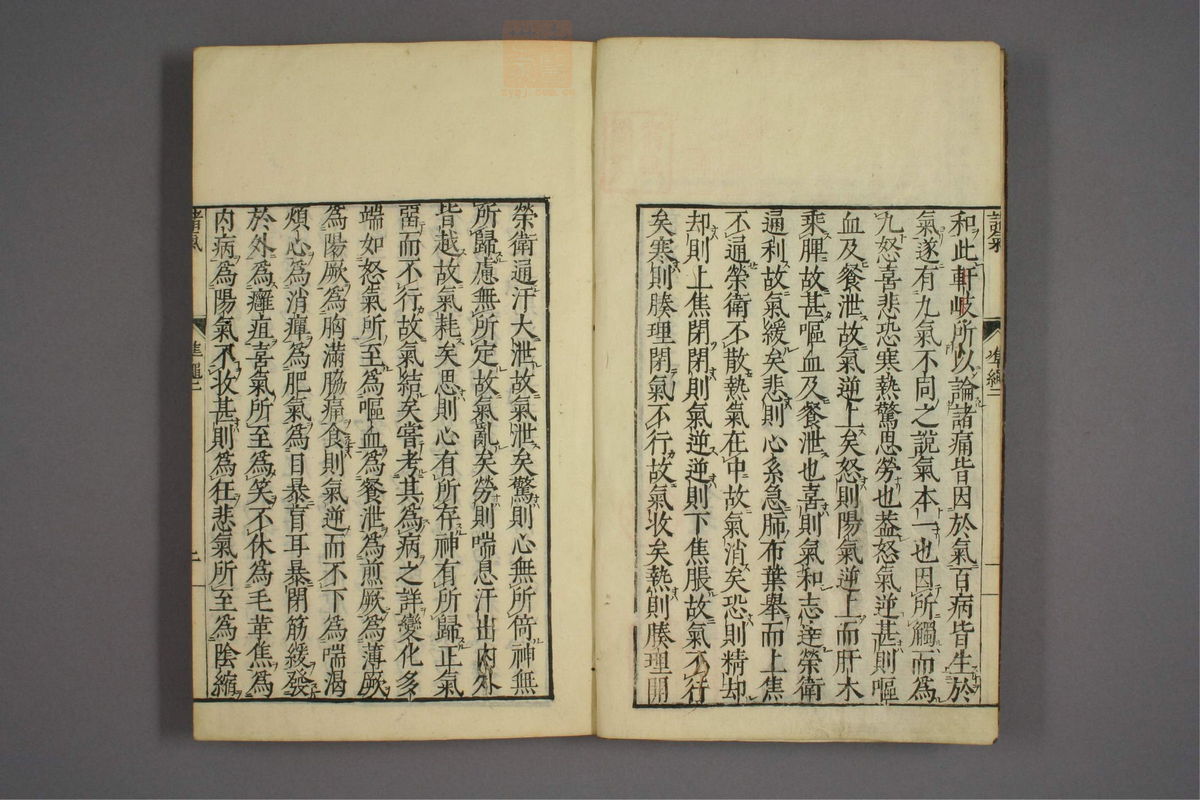 諸氣
準繩二
一
和此軒岐所以論諸痛皆因於氣百病皆生於
氣遂有九氣不同之說氣本一也因所觸而為
九怒喜悲恐寒熱驚思勞也蓋怒氣逆甚則嘔
血及餐泄故氣逆上矣怒則陽氣逆上而肝木
乘脾故甚嘔血及餐泄也喜則氣和志達榮衛
通利故氣緩矣悲則心系急肺布葉舉而上焦
不通榮衛不散熱氣在中故氣消矣恐則精却
却則上焦閉閉則氣逆逆則下焦脹故氣不行
矣寒則腠理閉氣不行故氣收矣熱則腠理開
榮衛通汗大泄故氣泄矣驚則心無所倚神無
所歸慮無所定故氣亂矣勞則喘息汗出內外
皆越故氣耗矣思則心有所存神有所歸正氣
畱而不行故氣結矣嘗考其為病之詳變化多
端如怒氣所至為嘔血為餐泄為煎厥為薄厥
為陽厥為胸滿脇痛食則氣逆而不下為喘渴
煩心為消癉為肥氣為目暴盲耳暴閉筋緩發
於外為癰疽喜氣所至為笑不休為毛革焦為
內病為陽氣不收甚則為狂悲氣所至為陰縮
諸氣
準繩二